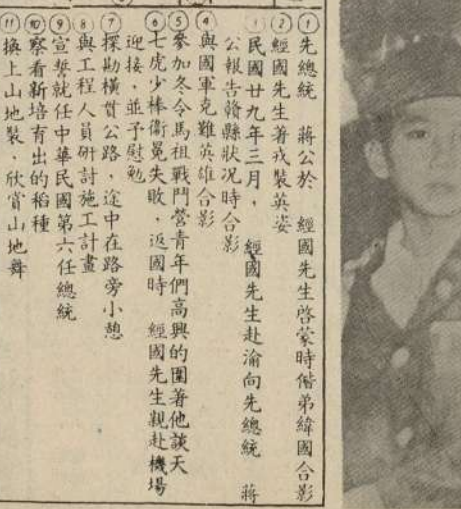 ①先總統　蔣公於　經國先生啓蒙時偕弟緯國合影
②經國先生著戎裝英姿
③民國廿九年三月，　經國先生赴渝向先總統　蔣
公報告贛縣狀况時合影
④與國軍克難英雄合影
⑤參加冬令馬祖戰鬥營青年們高興的圍著他談天
⑥七虎少棒衞冕失敗，返國時　經國先生親赴機場
迎接，並予慰勉
⑦探勘橫貫公路，途中在路旁小憩
⑧與工程人員研討施工計畫
⑨宣誓就任中華民國第六任總統
⑩察看新培育出的稻種
⑪換上山地裝，欣賞山地舞